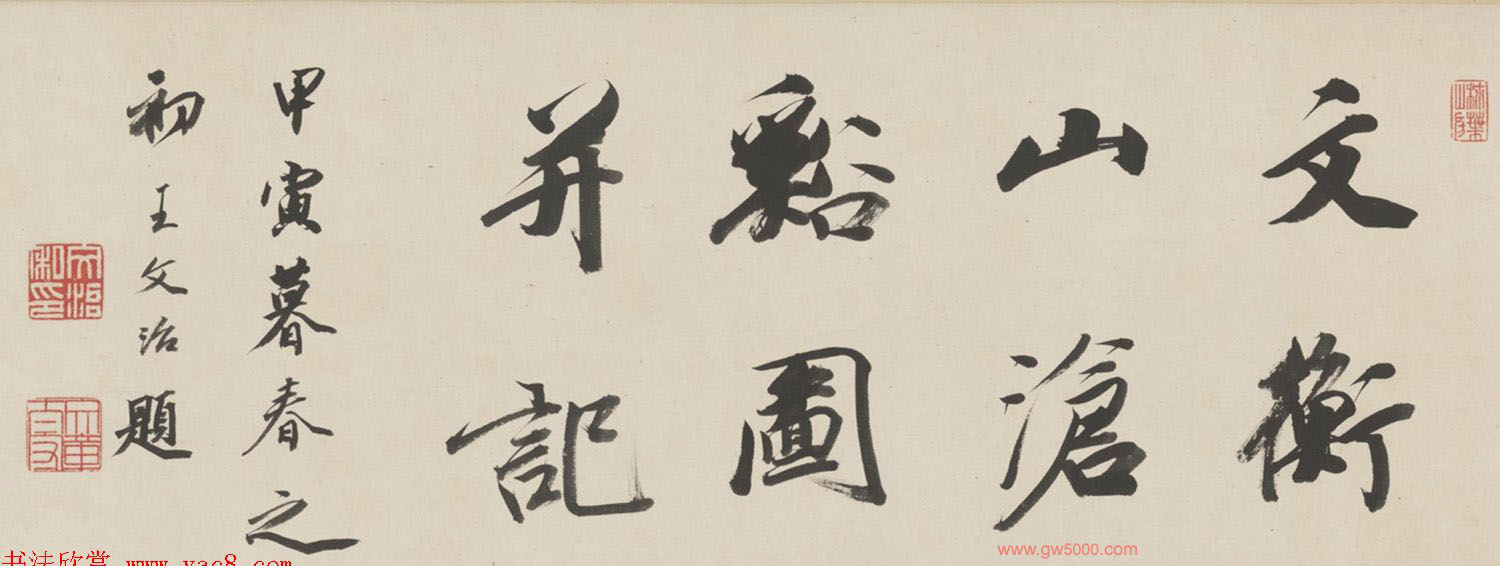 文衡
山滄
谿圖
并記
甲寅暮春之
初王文治題
林葉山房
文治私印
www.gw5000.com
书法欣赏 www.yac8.com